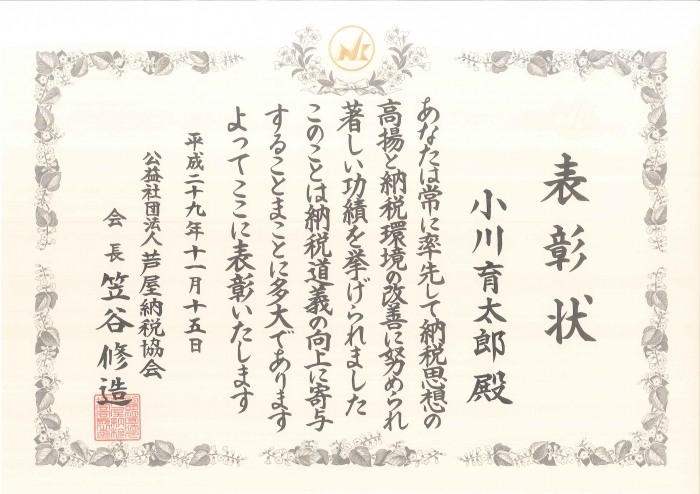 表彰状
小川育太郎殿
あなたは常に率先して納税思想の
高揚と納税環境の改善に努められ
著しい功績を挙げられました
このことは納税道義の向上に寄与
することまことに多大であります
よってここに表彰いたします
平成二十九年十一月十五日
公益社団法人芦屋納税協会
会長 笠谷修造